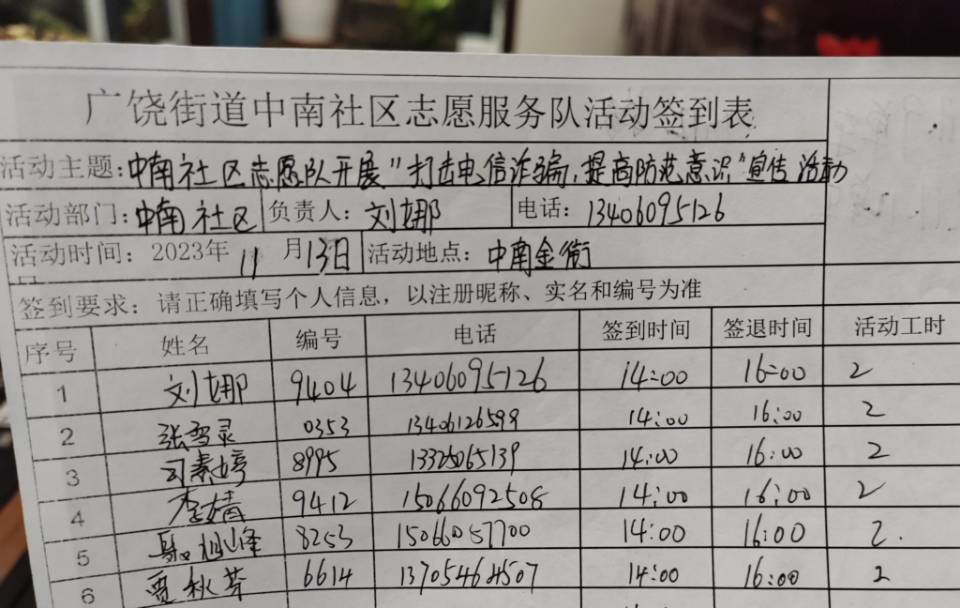 广饶街道中南社区志愿服务队活动签到表
活动主题：中南社区志愿队开展"打击电信诈骗，提高防范意识"宣传活动
活动部门：中南社区 负责人：刘娜 电话：13406095126
活动时间：2023年11月13日 活动地点：中南金街
签到要求：请正确填写个人信息，以注册昵称、实名和编号为准
序号 姓名 编号 电话 签到时间 签退时间 活动工时
1 刘娜 9404 13406095126 14:00 16:00 2
2 张雪灵 0353 13406126599 14:00 16:00 2
3 司素婷 8995 13325065139 14:00 16:00 2
4 李婧 9412 15066092508 14:00 16:00 2
5 8253 15066057700 14:00 16:00 2.
6 贾秋芬 6614 13705464507 14:00 16:00 2